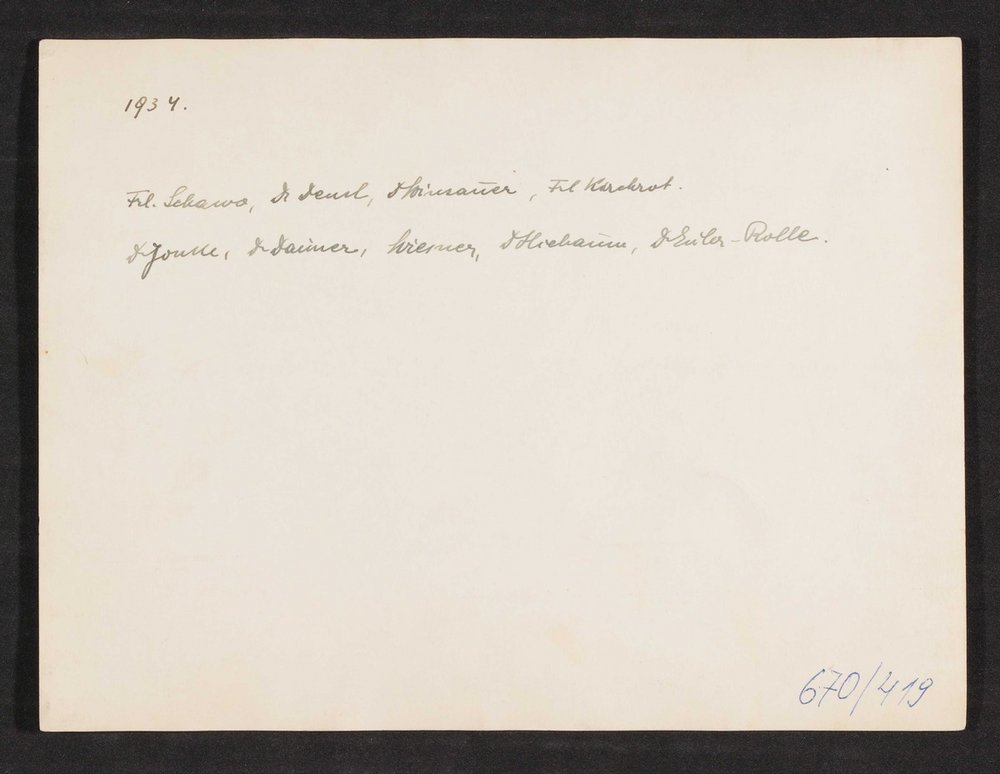 1934.
Frl. Schawo, Dr Denst, Dr Winsauer, Frl Kerchrot.
Dr Jonke, Dr Dauner, Wiesner, Dr Hiebaum, Dr Euler-Rolle.
670/419